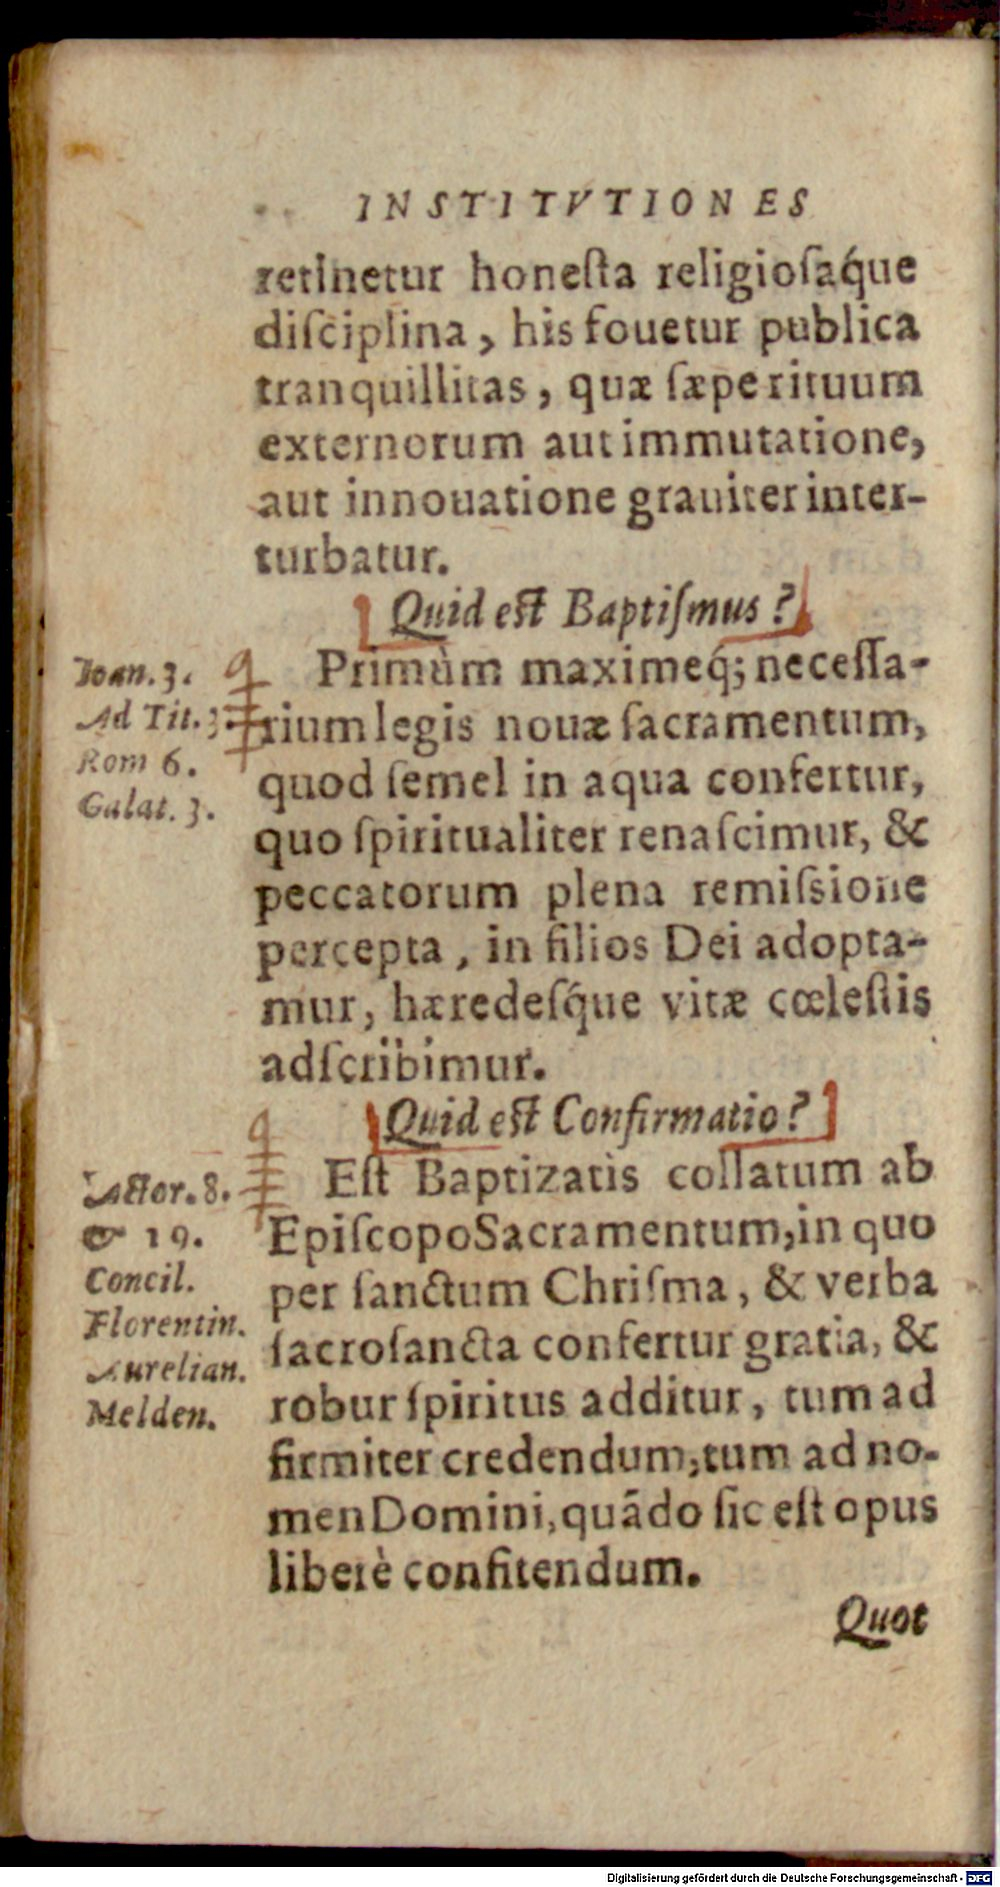 INSTITVTIONES
retinetur honeſta religioſaq́ue
diſciplina, his fouetur publica
tranquillitas, quæ ſæpe rituum
externorum aut immutatione,
aut innouatione grauiter inter-
turbatur.
Quid eſt Baptiſmus?
Primùm maximeq́; neceſſa-
rium legis nouæ ſacramentum,
quod ſemel in aqua confertur,
quo ſpiritualiter renaſcimur, &
peccatorum plena remiſsione
percepta, in filios Dei adopta-
mur, hæredeſq́ue vitæ cœleſtis
adſcribimur.
Ioan. 3.
Ad Tit. 3.
Rom 6.
Galat. 3.
Quid eſt Confirmatio?
Eſt Baptizatis collatum ab
Epiſcopo Sacramentum, in quo
per ſanctum Chriſma, & verba
ſacroſancta confertur gratia, &
robur ſpiritus additur, tum ad
firmiter credendum, tum ad no-
men Domini, quãdo ſic eſt opus
liberè confitendum.
Actor. 8.
& 19.
Concil.
Florentin.
Aurelian.
Melden.
Quot
Digitalisierung gefördert durch die Deutsche Forschungsgemeinschaft - DFG